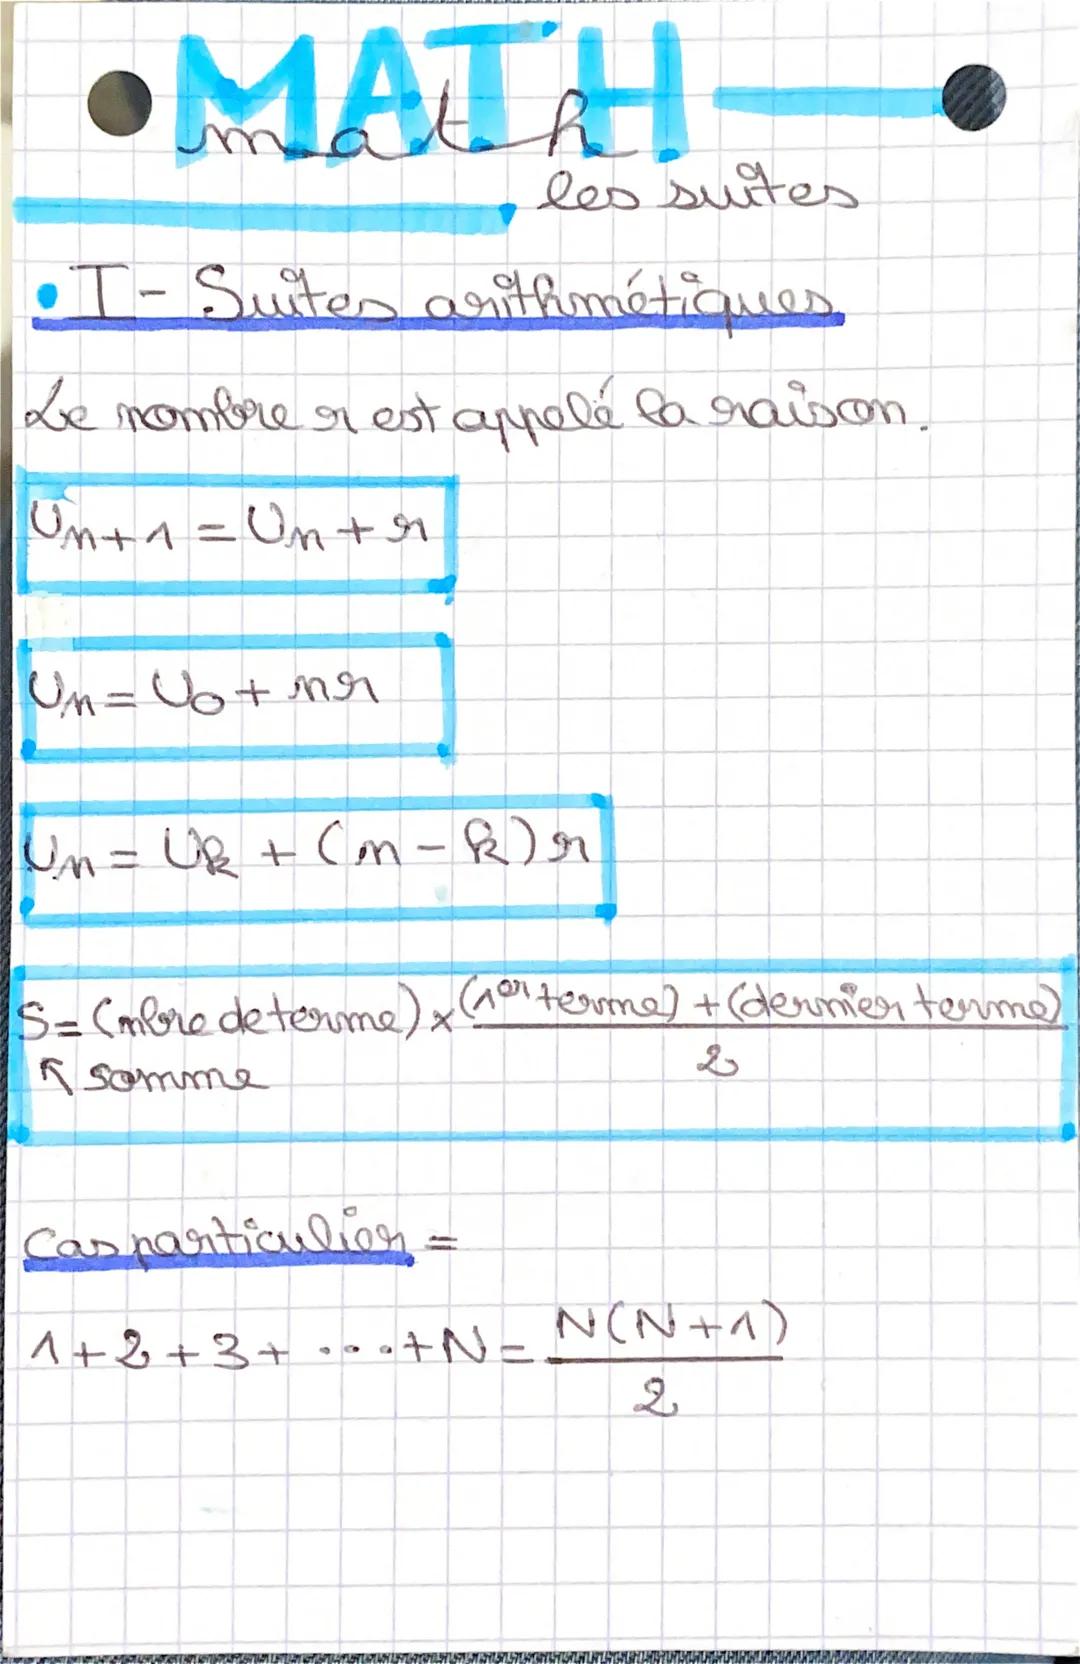 MATH
math
les suites
• I - Suites arithmétiques
Le nombre r est appelé la raison.
Un+1 = Un + r
Un = U0 + nr
Un = Uk + (n - k) r
S = (nbre de terme) x (1er terme) + (dernier terme)
2
↖ somme
Cas particulier =
1 + 2 + 3 + .... + N = N(N+1)
2